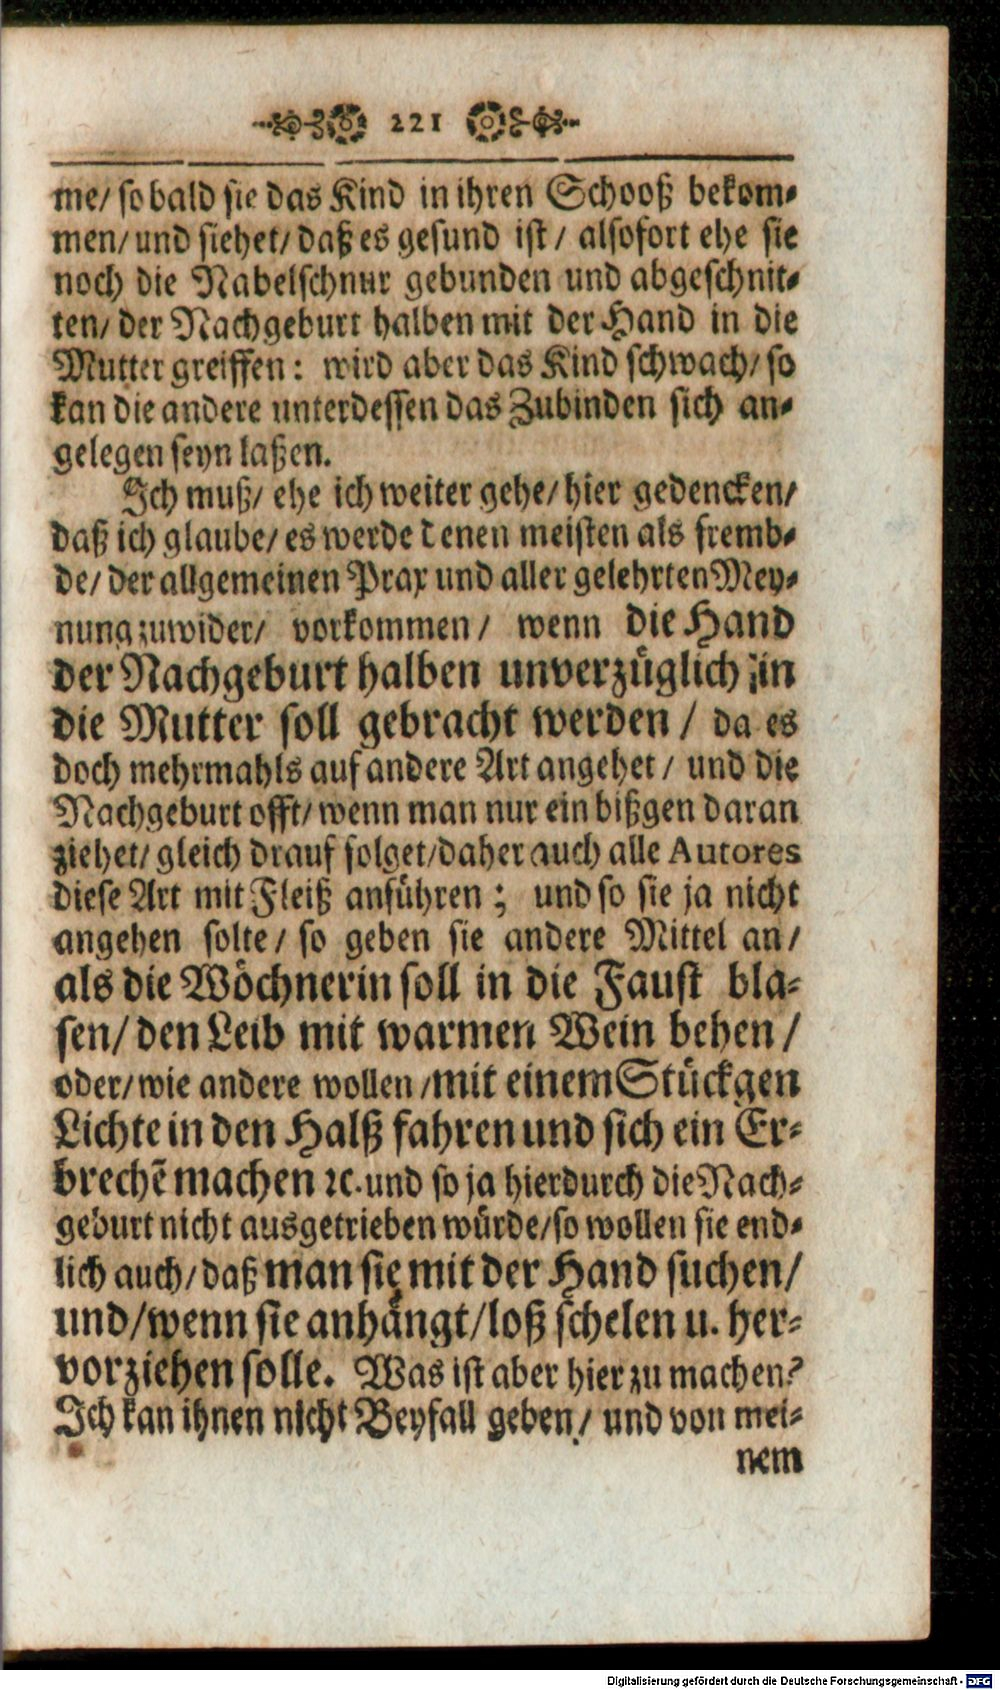 221
me/ so bald sie das Kind in ihren Schooß bekom-
men/ und siehet/ daß es gesund ist/ alsofort ehe sie
noch die Nabelschnur gebunden und abgeschnit-
ten/ der Nachgeburt halben mit der Hand in die
Mutter greiffen: wird aber das Kind schwach/ so
kan die andere unterdessen das Zubinden sich an-
gelegen seyn laßen.
Ich muß/ ehe ich weiter gehe/ hier gedencken/
daß ich glaube/ es werde denen meisten als fremb-
de/ der allgemeinen Prax und aller gelehrten Mey-
nung zuwider/ vorkommen/ wenn die Hand
der Nachgeburt halben unverzüglich in
die Mutter soll gebracht werden / da es
doch mehrmahls auf andere Art angehet / und die
Nachgeburt offt/ wenn man nur ein bißgen daran
ziehet/ gleich drauf folget/ daher auch alle Autores
diese Art mit Fleiß anführen ; und so sie ja nicht
angehen solte/ so geben sie andere Mittel an/
als die Wöchnerin soll in die Faust bla-
sen/ den Leib mit warmen Wein behen /
oder/ wie andere wollen /mit einem Stückgen
Lichte in den Halß fahren und sich ein Er-
brechē machen ꝛc. und so ja hierdurch die Nach-
geburt nicht ausgetrieben würde/ so wollen sie end-
lich auch/ daß man sie mit der Hand suchen/
und/ wenn sie anhängt/ loß schelen u. her-
vorziehen solle. Was ist aber hier zu machen?
Ich kan ihnen nicht Beyfall geben/ und von mei-
nem
Digitalisierung gefördert durch die Deutsche Forschungsgemeinschaft - DFG